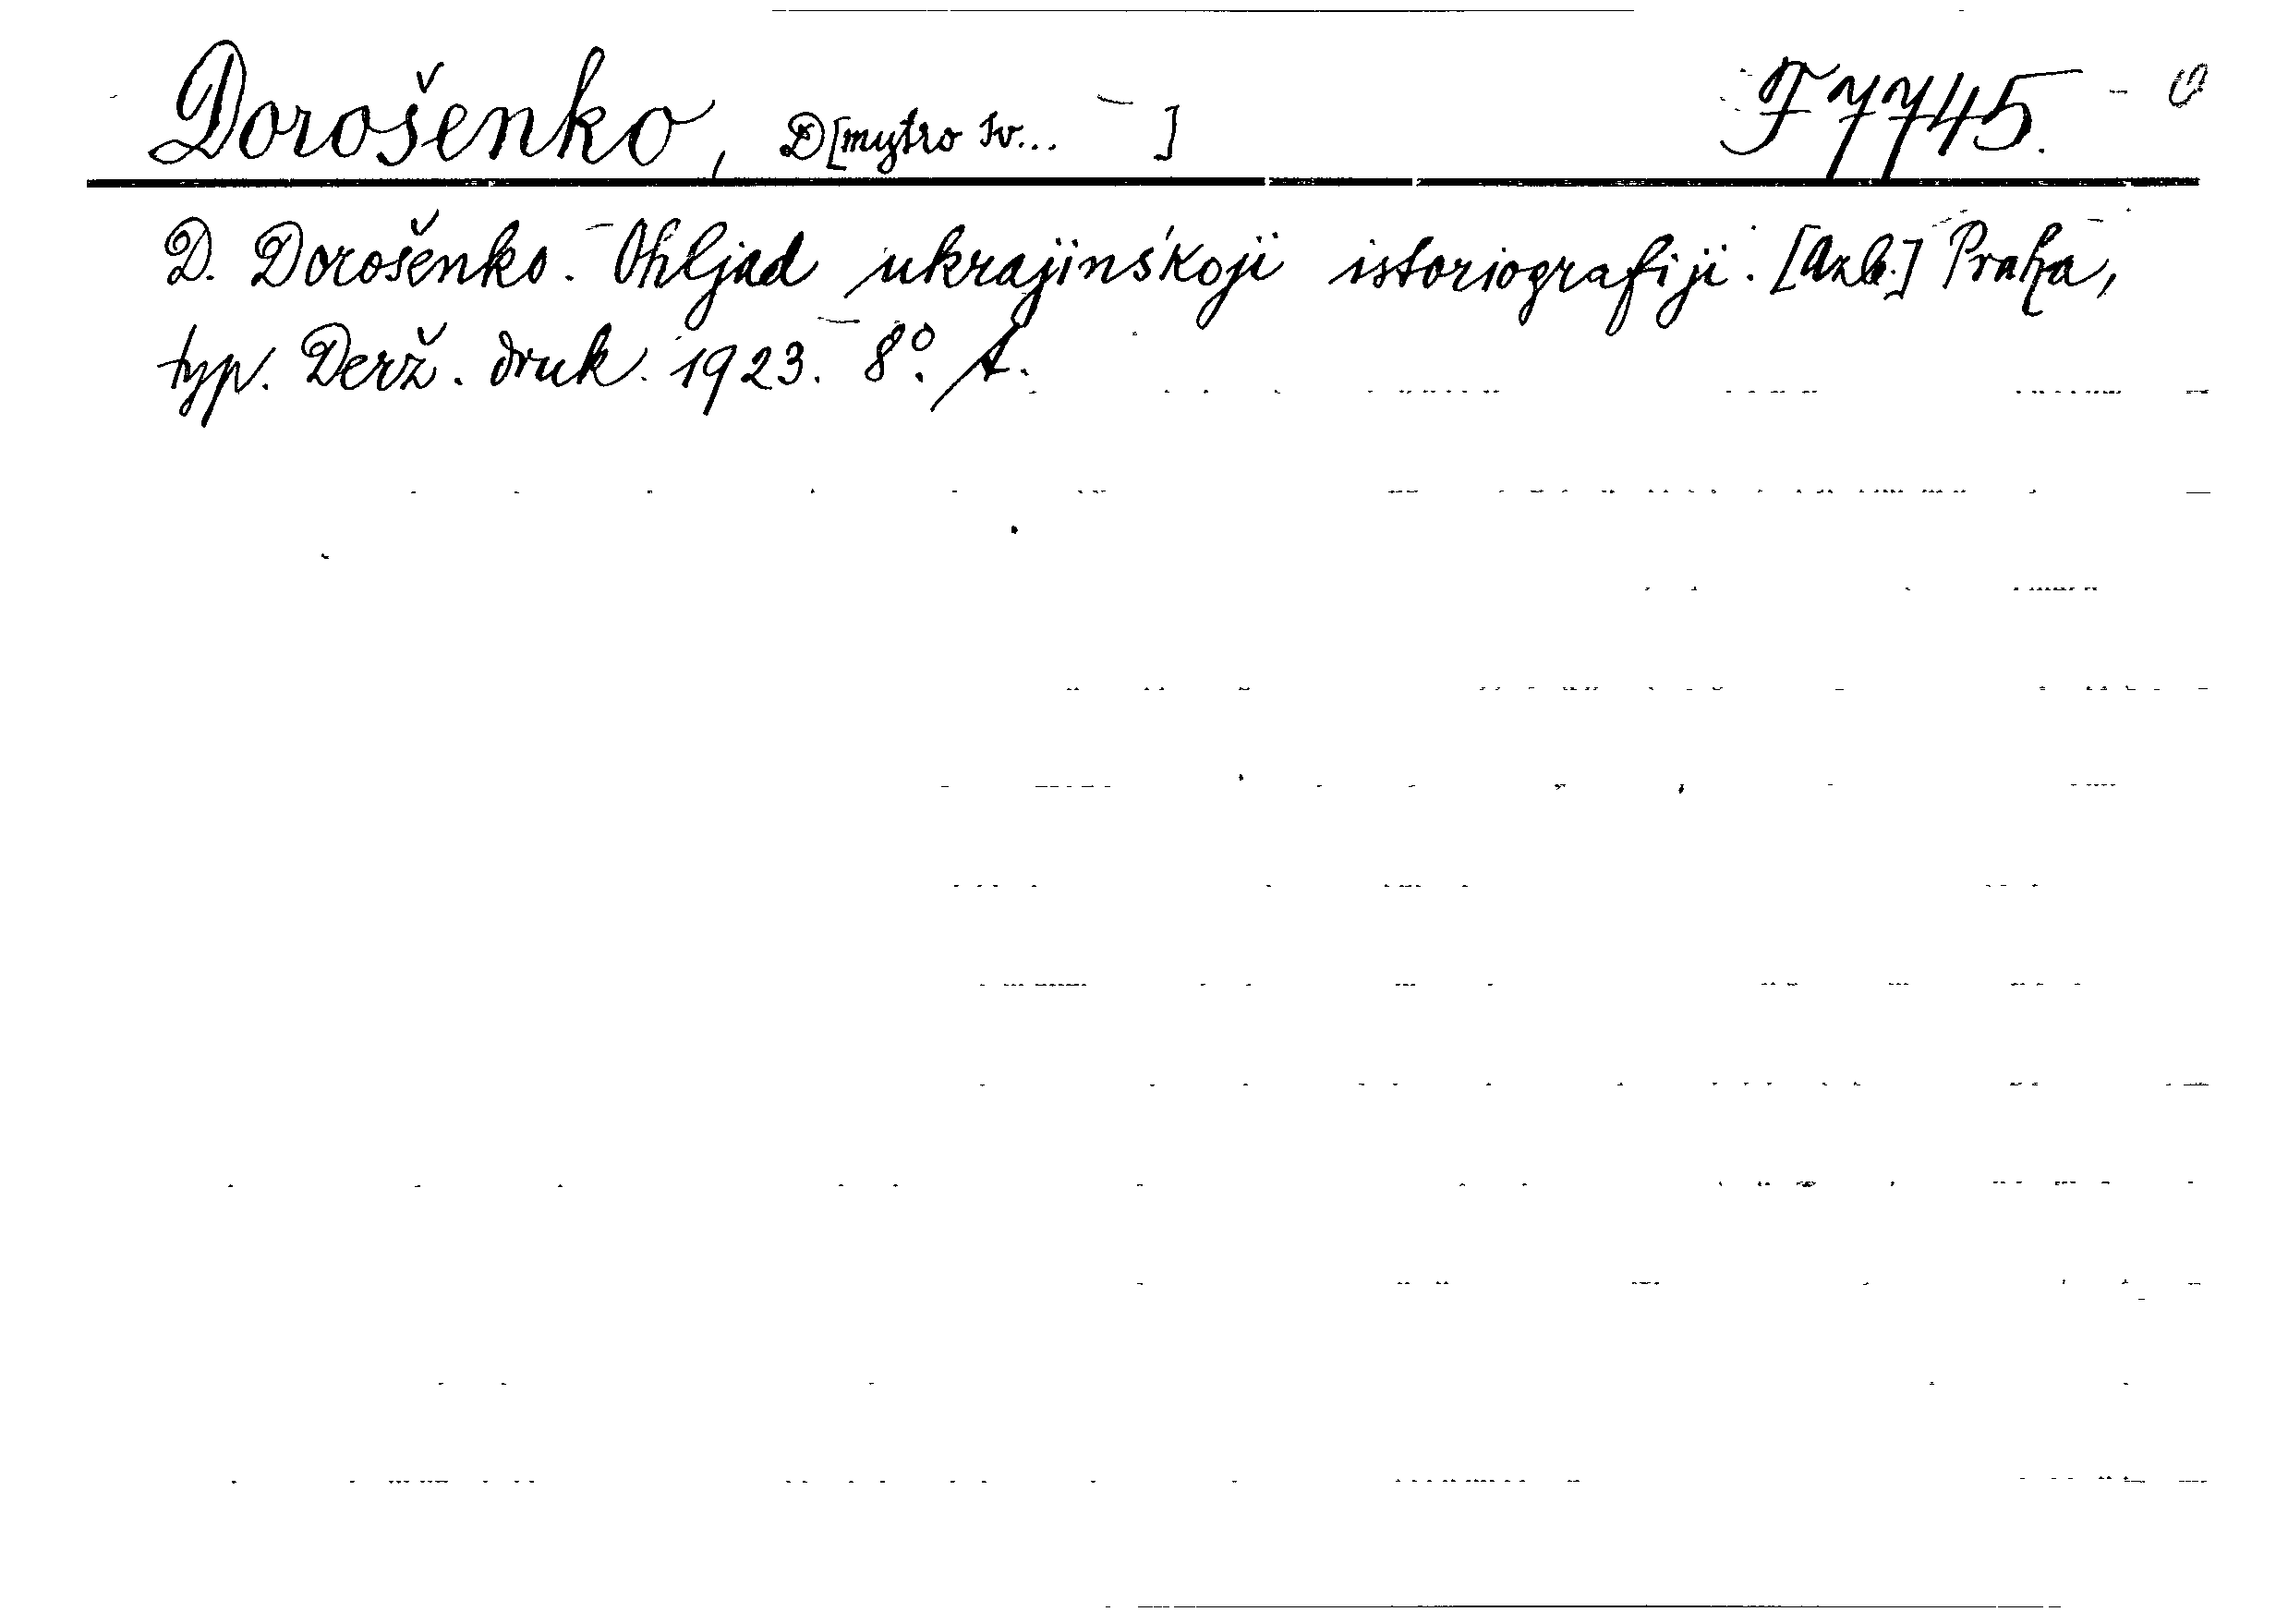 Dorošenko, D[mytro Iv... ] F 7745.
D. Dorošenko. Ohljad ukrajinśkoji istoriografiji. [Azb.] Praha,
typ. Derž. druk. 1923. 8°. A.